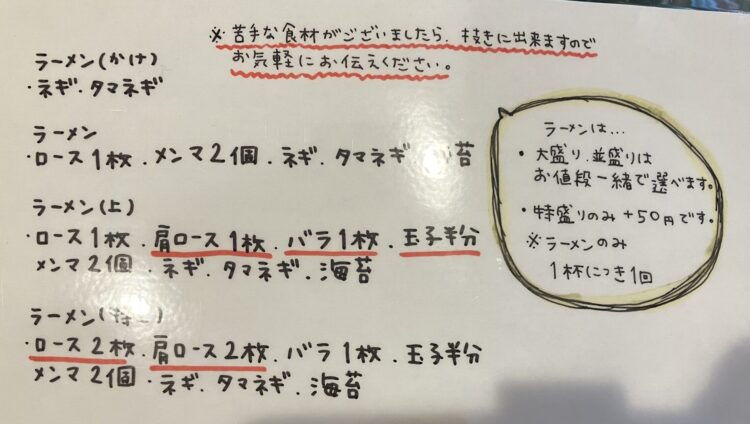 ※苦手な食材がございましたら、抜きに出来ますので
お気軽にお伝えください。
ラーメン(かけ)
・ネギ.タマネギ
ラーメン
・ロース1枚.メンマ2個.ネギ.タマネギ 苔
ラーメン(上)
・ロース1枚.肩ロース1枚.バラ1枚.玉子半分
メンマ2個.ネギ.タマネギ.海苔
ラーメン(特上)
・ロース2枚.肩ロース2枚.バラ1枚.玉子半分
メンマ2個・ネギ.タマネギ.海苔
ラーメンは…
・大盛り.並盛りは
お値段一緒で選べます。
・特盛りのみ+50円です。
※ラーメンのみ
1杯につき1回